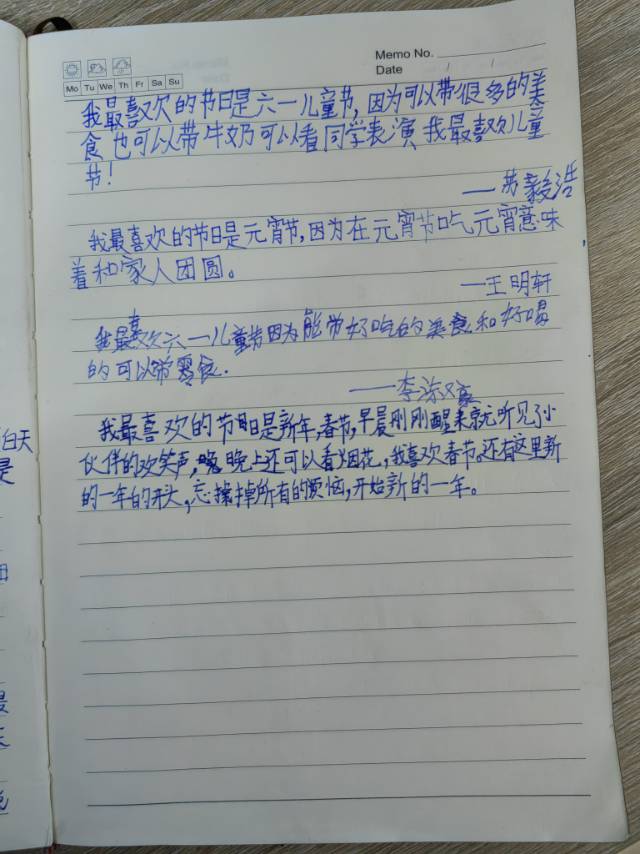 Memo No.
Date / /
Mo Tu We Th Fr Sa Su
我最喜欢的节日是六一儿童节,因为可以带很多的美
食也可以带牛奶可以看同学表演我最喜欢儿童
节!
——苏毅浩
我最喜欢的节日是元宵节,因为在元宵节吃元宵意味
着和家人团圆。
——王明轩
我最喜欢六一儿童节因为能带好吃的美食和好喝
的可以带零食.
——李
我最喜欢的节日是新年,春节,早晨刚刚醒来就听见了小
伙伴的欢笑声,晚上还可以看烟花,我喜欢春节。还有这里新
的一年的开头,忘掉所有的烦恼,开始新的一年。
白天
是